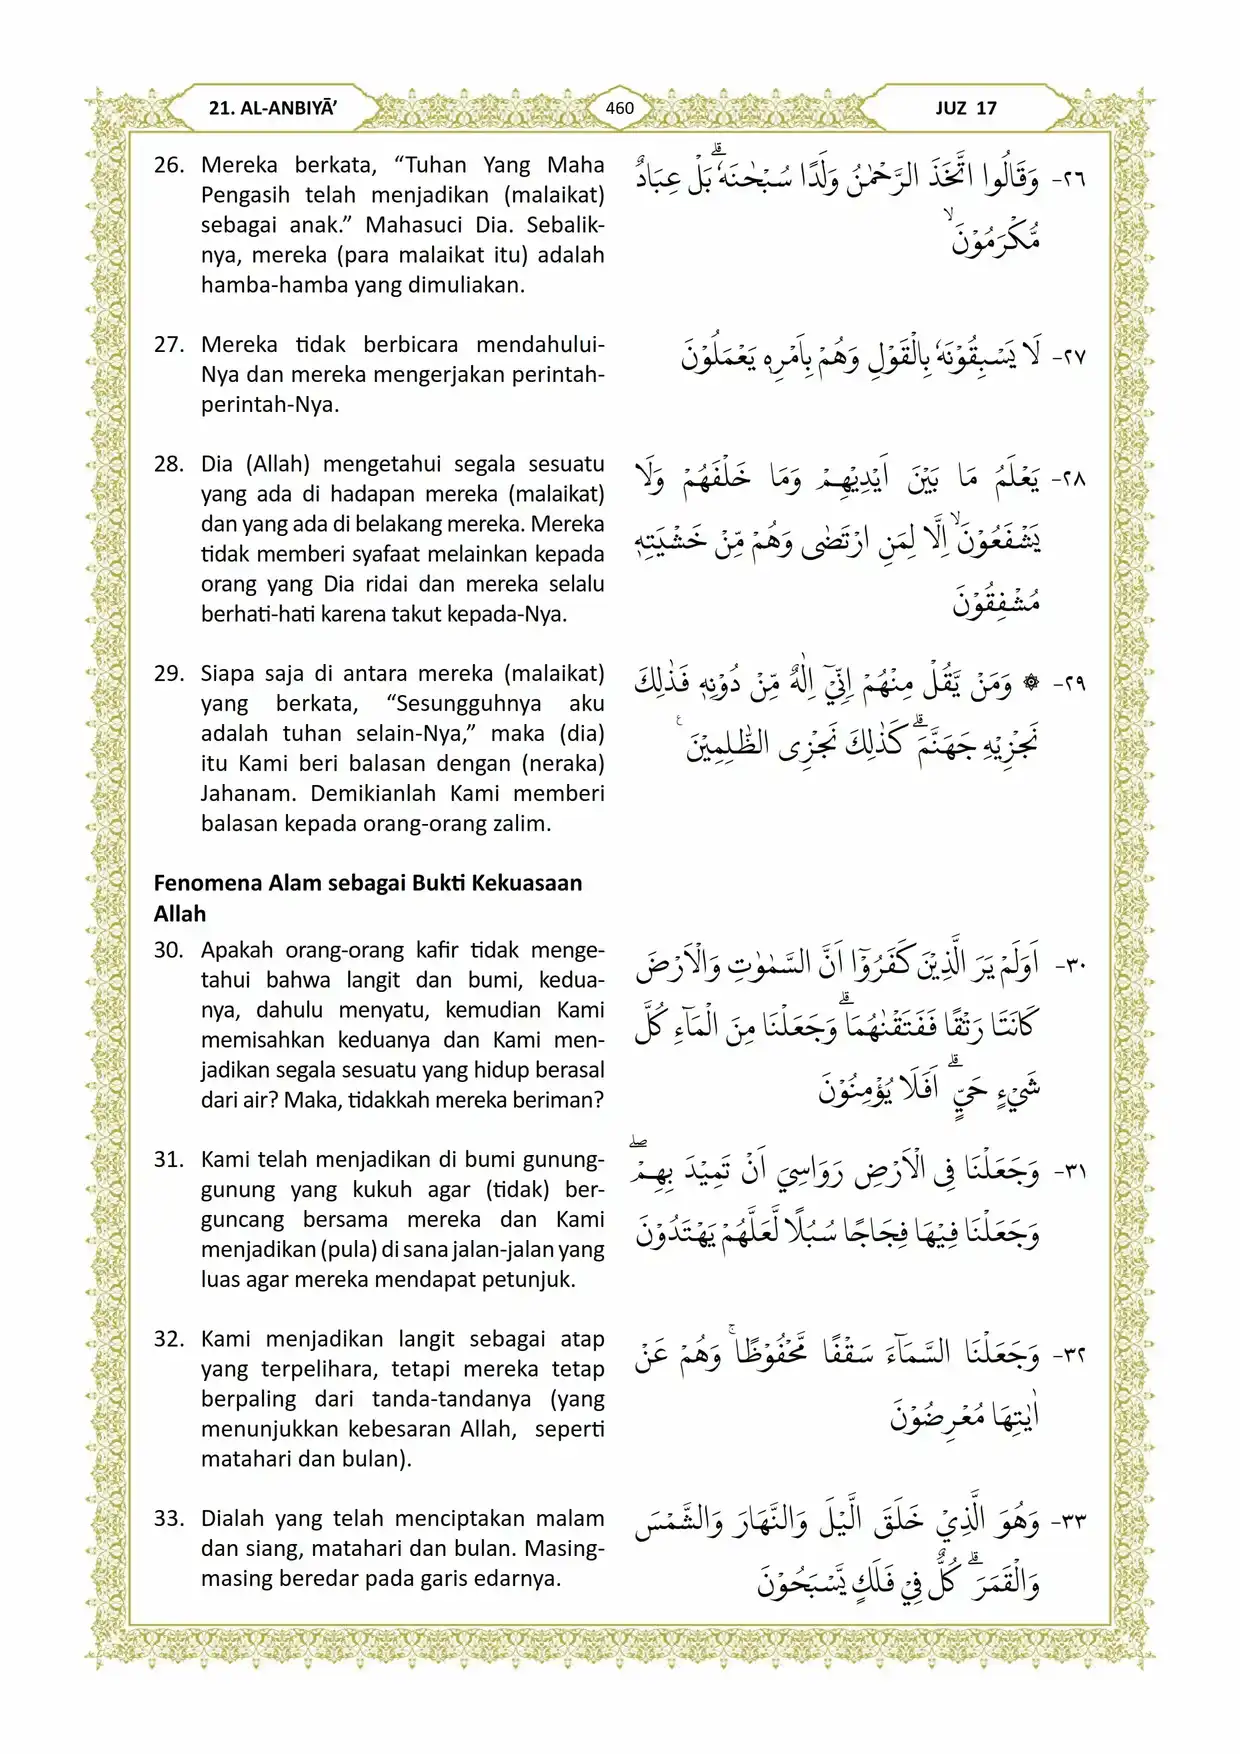 21. AL-ANBIYĀ’
460
JUZ 17
26. Mereka berkata, “Tuhan Yang Maha
Pengasih telah menjadikan (malaikat)
sebagai anak.” Mahasuci Dia. Sebalik-
nya, mereka (para malaikat itu) adalah
hamba-hamba yang dimuliakan.
٢٦- وَقَالُوا اتَّخَذَ الرَّحْمٰنُ وَلَدًا سُبْحٰنَهٗ ۗبَلْ عِبَادٌ
مُّكْرَمُوْنَ ۙ
27. Mereka tidak berbicara mendahului-
Nya dan mereka mengerjakan perintah-
perintah-Nya.
٢٧- لَا يَسْبِقُوْنَهٗ بِالْقَوْلِ وَهُمْ بِاَمْرِهٖ يَعْمَلُوْنَ
28. Dia (Allah) mengetahui segala sesuatu
yang ada di hadapan mereka (malaikat)
dan yang ada di belakang mereka. Mereka
tidak memberi syafaat melainkan kepada
orang yang Dia ridai dan mereka selalu
berhati-hati karena takut kepada-Nya.
٢٨- يَعْلَمُ مَا بَيْنَ اَيْدِيْهِمْ وَمَا خَلْفَهُمْ وَلَا
يَشْفَعُوْنَۙ اِلَّا لِمَنِ ارْتَضٰى وَهُمْ مِّنْ خَشْيَتِهٖ
مُشْفِقُوْنَ
29. Siapa saja di antara mereka (malaikat)
yang berkata, “Sesungguhnya aku
adalah tuhan selain-Nya,” maka (dia)
itu Kami beri balasan dengan (neraka)
Jahanam. Demikianlah Kami memberi
balasan kepada orang-orang zalim.
٢٩- ۞ وَمَنْ يَّقُلْ مِنْهُمْ اِنِّيْٓ اِلٰهٌ مِّنْ دُوْنِهٖ فَذٰلِكَ
نَجْزِيْهِ جَهَنَّمَۗ كَذٰلِكَ نَجْزِى الظّٰلِمِيْنَ ࣖ
Fenomena Alam sebagai Bukti Kekuasaan
Allah
30. Apakah orang-orang kafir tidak menge-
tahui bahwa langit dan bumi, kedua-
nya, dahulu menyatu, kemudian Kami
memisahkan keduanya dan Kami men-
jadikan segala sesuatu yang hidup berasal
dari air? Maka, tidakkah mereka beriman?
٣٠- اَوَلَمْ يَرَ الَّذِيْنَ كَفَرُوْٓا اَنَّ السَّمٰوٰتِ وَالْاَرْضَ
كَانَتَا رَتْقًا فَفَتَقْنٰهُمَاۗ وَجَعَلْنَا مِنَ الْمَاۤءِ كُلَّ
شَيْءٍ حَيٍّۗ اَفَلَا يُؤْمِنُوْنَ
31. Kami telah menjadikan di bumi gunung-
gunung yang kukuh agar (tidak) ber-
guncang bersama mereka dan Kami
menjadikan (pula) di sana jalan-jalan yang
luas agar mereka mendapat petunjuk.
٣١- وَجَعَلْنَا فِى الْاَرْضِ رَوَاسِيَ اَنْ تَمِيْدَ بِهِمْۖ
وَجَعَلْنَا فِيْهَا فِجَاجًا سُبُلًا لَّعَلَّهُمْ يَهْتَدُوْنَ
32. Kami menjadikan langit sebagai atap
yang terpelihara, tetapi mereka tetap
berpaling dari tanda-tandanya (yang
menunjukkan kebesaran Allah, seperti
matahari dan bulan).
٣٢- وَجَعَلْنَا السَّمَاۤءَ سَقْفًا مَّحْفُوْظًاۚ وَهُمْ عَنْ
اٰيٰتِهَا مُعْرِضُوْنَ
33. Dialah yang telah menciptakan malam
dan siang, matahari dan bulan. Masing-
masing beredar pada garis edarnya.
٣٣- وَهُوَ الَّذِيْ خَلَقَ الَّيْلَ وَالنَّهَارَ وَالشَّمْسَ
وَالْقَمَرَۗ كُلٌّ فِيْ فَلَكٍ يَّسْبَحُوْنَ